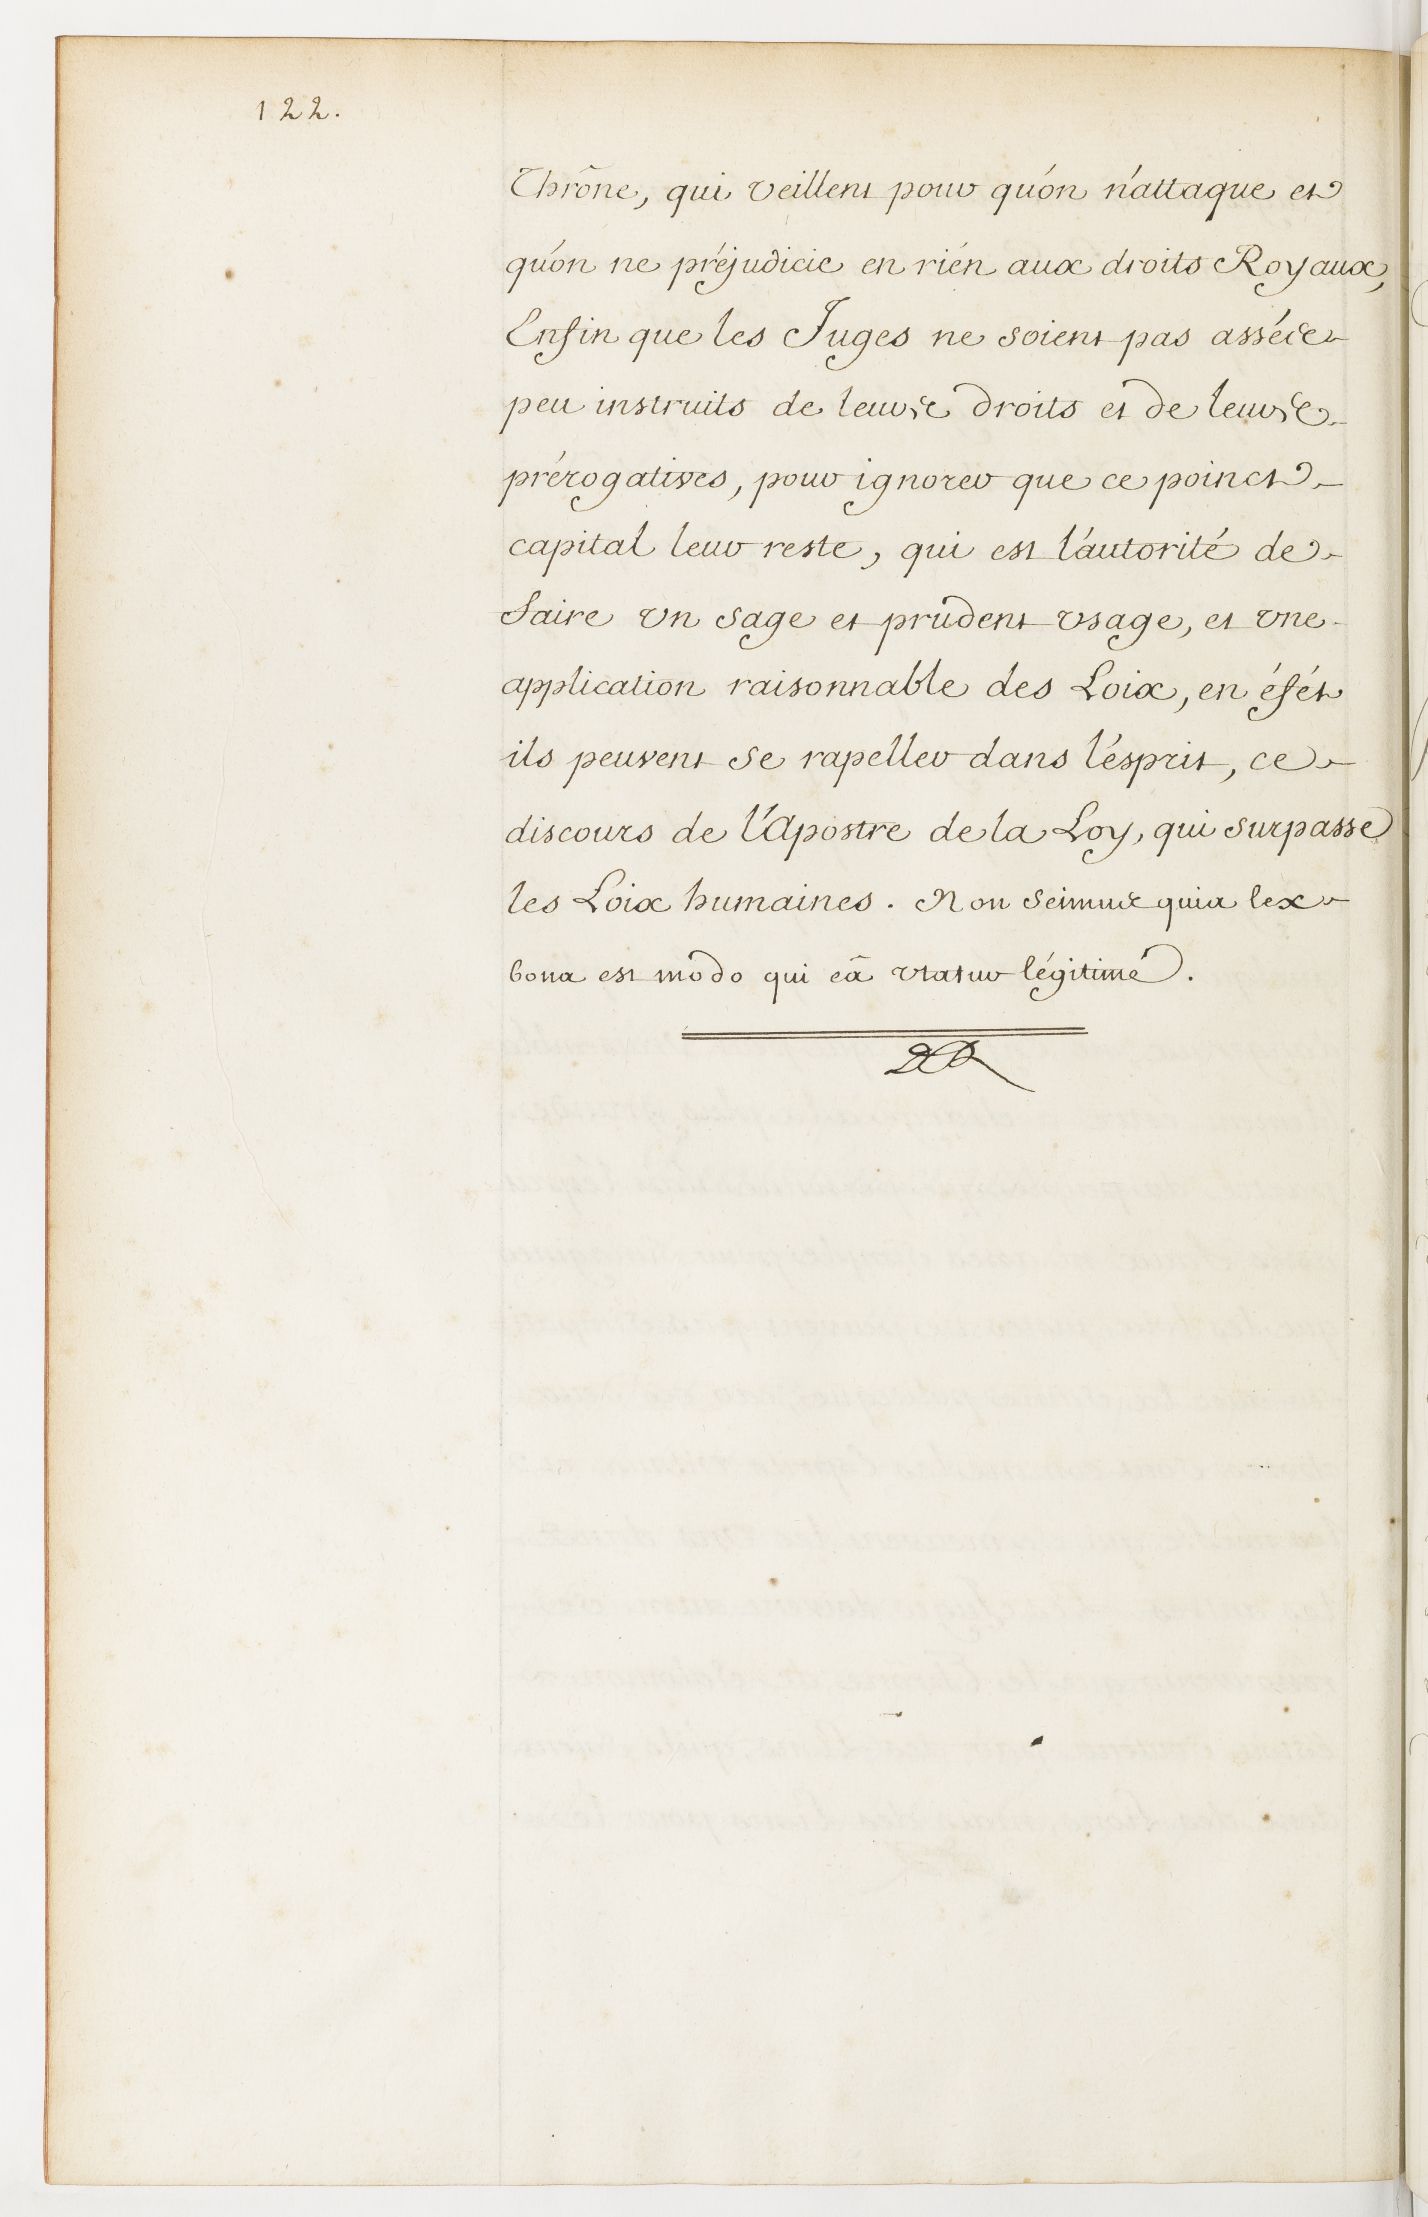 122.
Thrône, qui veillent pour qu'on n'attaque et
qu'on ne préjudicie en rién aux droits Royaux,
Enfin que les Juges ne soient pas asséz
peu instruits de leurs droits et de leurs
prérogatives, pour ignorer que ce poinct
capital leur reste, qui est l'autorité de
faire vn sage et prudent vsage, et vne
application raisonnable des Loix, en éfét
ils peuvent se rapeller dans l'ésprit, ce
discours de l'Apostre de la Loy, qui surpasse
les Loix humaines. Non scimus quia lex
bona est modo qui eâ vtatur légitimé.